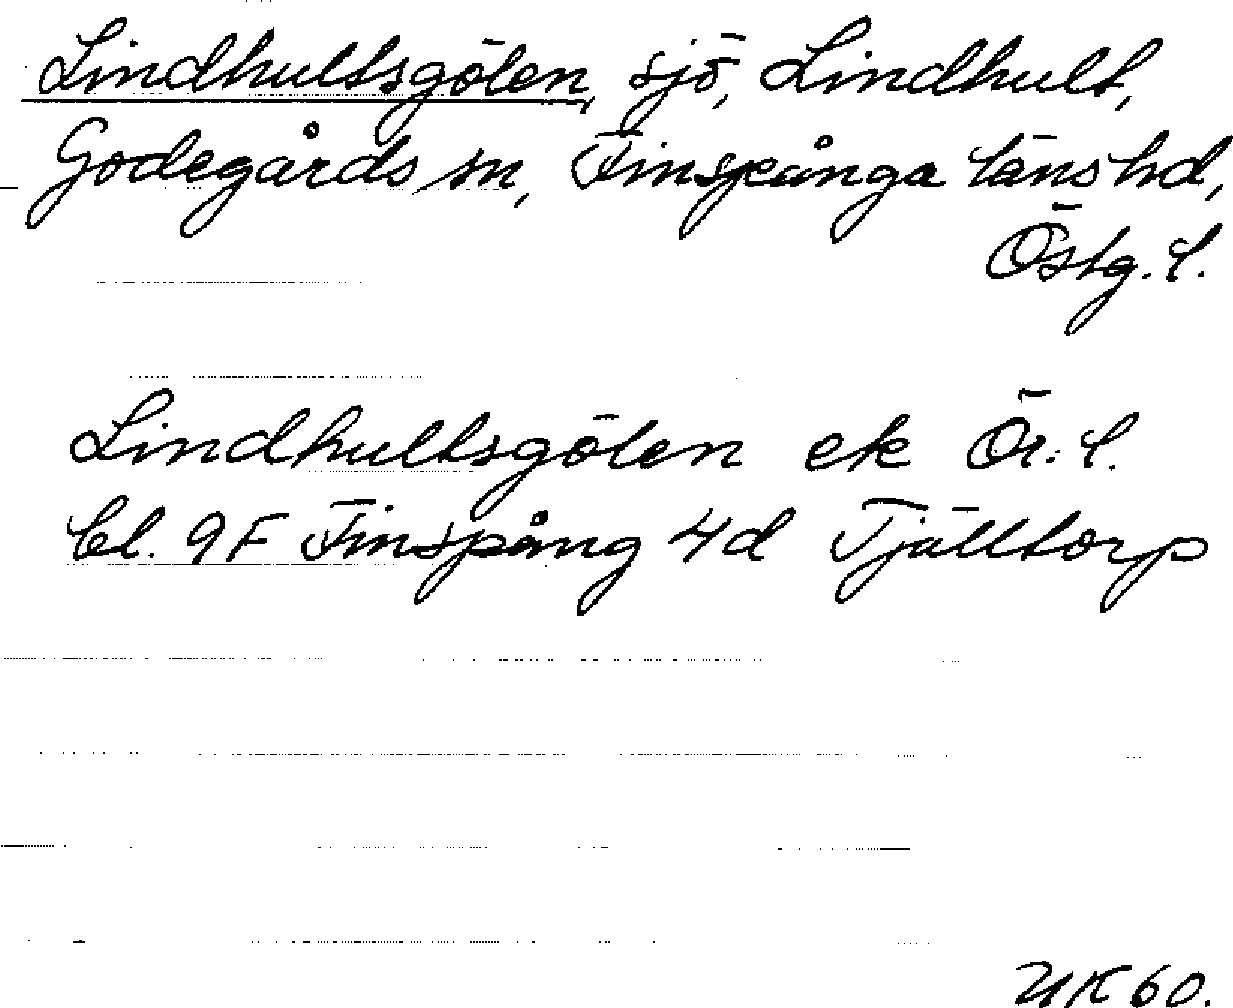 Lindhultsgölen, sjö, Lindhult,
Godegårds sn, Finspånga läns hd,
Östg. l.
Lindhultsgölen ek Ör. l.
bl. 9F Finspång 4d Tjälltorp
UK 60.